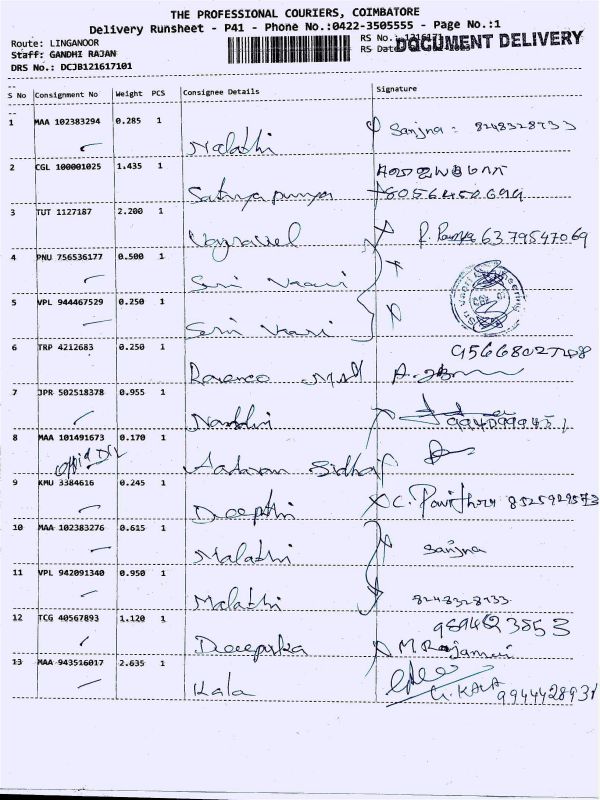 THE PROFESSIONAL COURIERS, COIMBATORE
Delivery Runsheet - P41 - Phone No.:0422-3505555 - Page No.:1
Route: LINGANOOR
RS No.:
DOCUMENT DELIVERY
Staff: GANDHI RAJAN
RS Date
DRS No.: DCJB121617101
S No Consignment No Weight PCS Consignee Details Signature
1 MAA 102383294 0.285 1 Malathi Sanjna - 8248328733
2 CGL 100001025 1.435 1 Sathya priya 8056450699
3 TUT 1127187 2.200 1 Vayravel R. 6379547069
4 PNU 756536177 0.500 1 Sri Vaari
5 VPL 944467529 0.250 1 Sri Vaari
6 TRP 4212683 0.250 1
7 JPR 502518378 0.955 1 Nandhini
8 MAA 101491673 0.170 1
9 KMU 3384616 0.245 1 Deepthi C. Pavithra 8525929573
10 MAA 102383276 0.615 1 Malathi Sanjna
11 VPL 942091340 0.950 1 Malathi 8248328733
12 TCG 40567893 1.120 1 Deepika 9894623853
M Rajamani
13 MAA 943516017 2.635 1 Kala G. KALA 9944428931